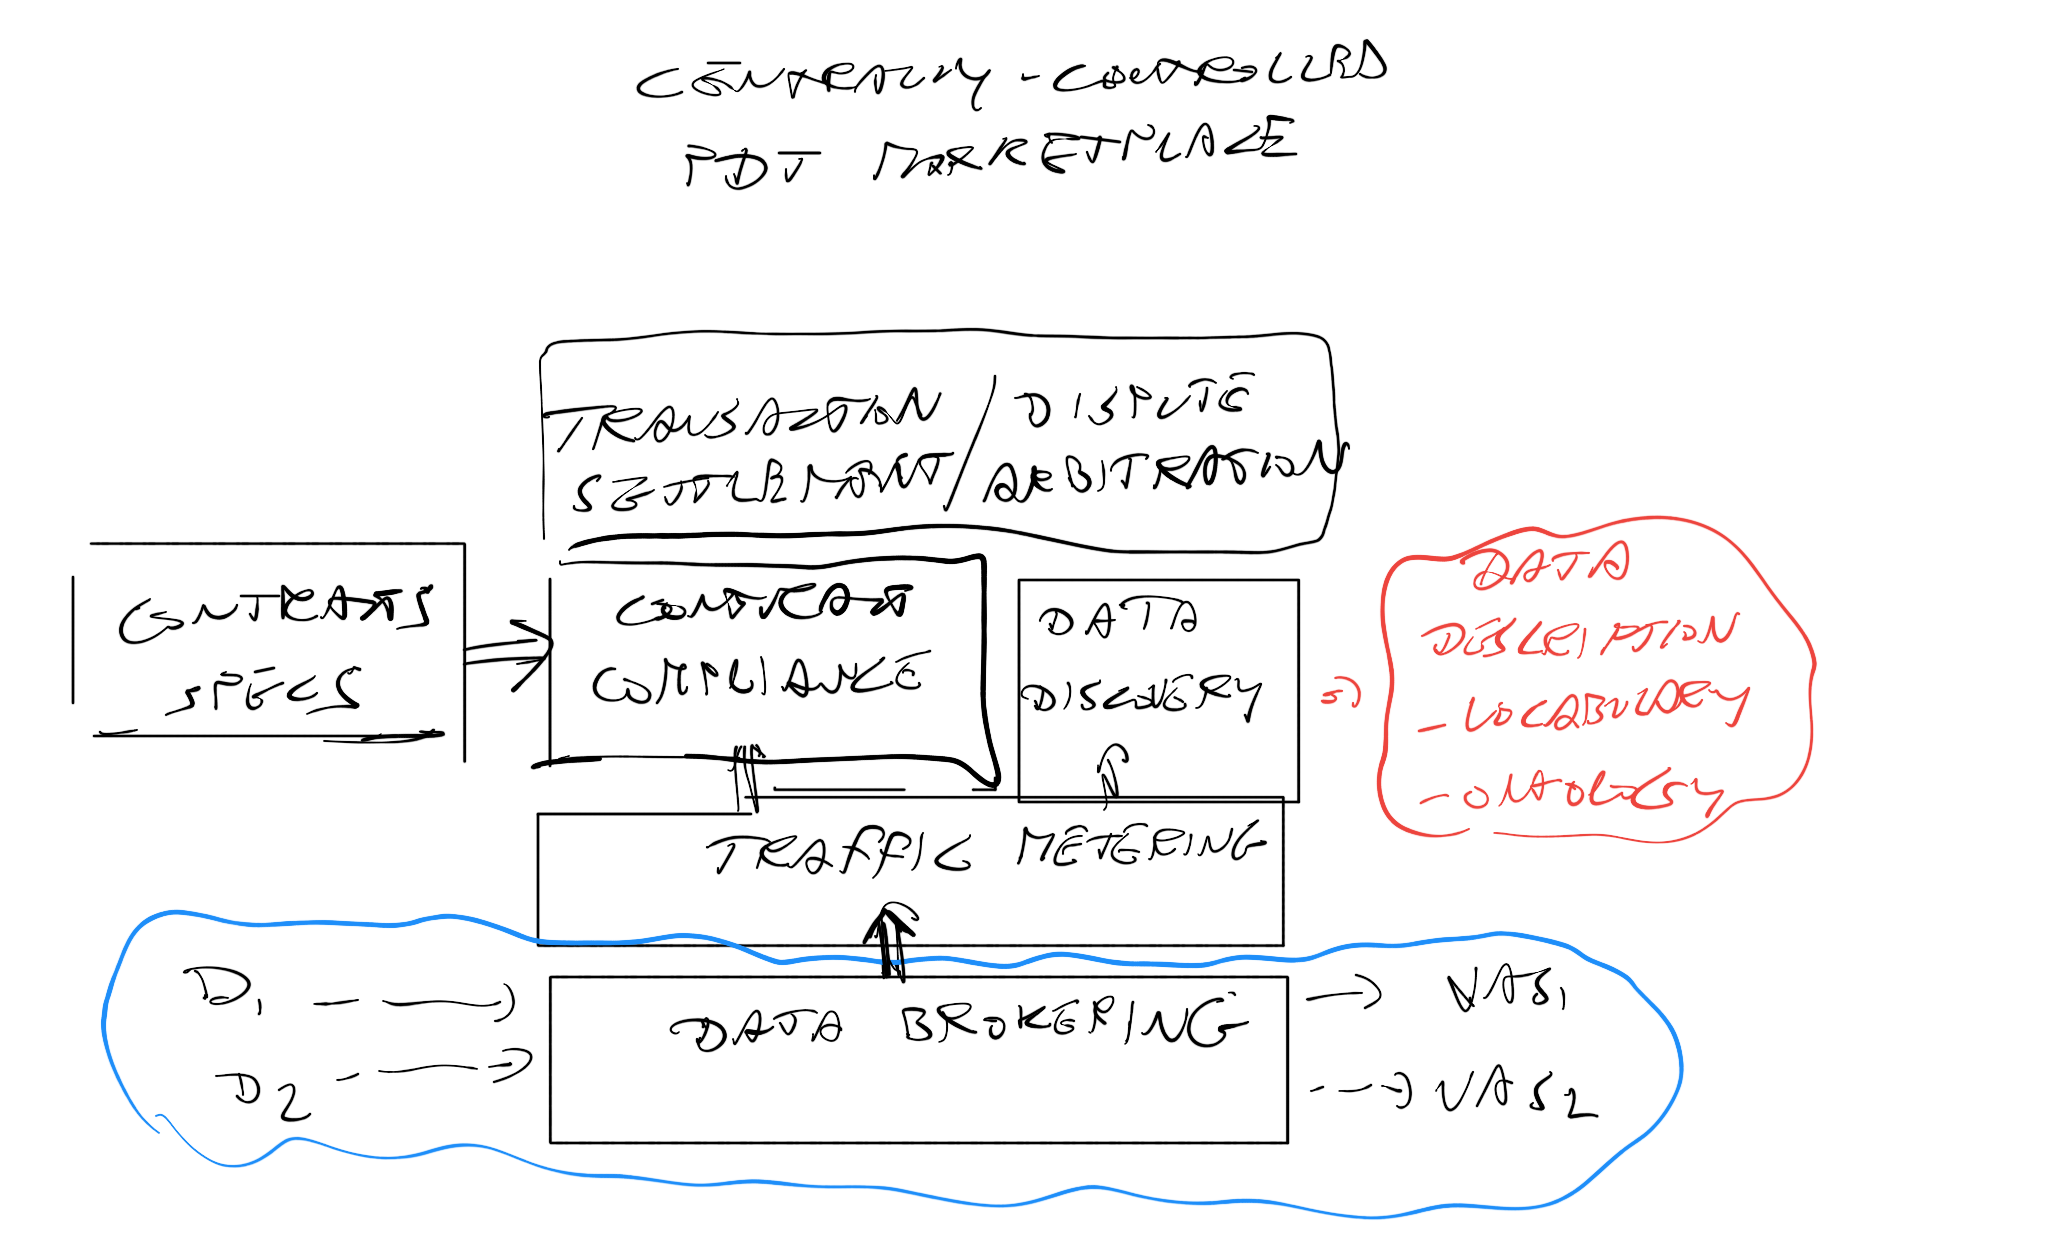 CENTRALLY-CONTROLLED
PDT MARKETPLACE
TRANSACTION / DISPUTE
SETTLEMENT / ARBITRATION
CONTRACTS
SPECS
CONTRACT
COMPLIANCE
DATA
DISCOVERY
DATA
DESCRIPTION
- VOCABULARY
- ONTOLOGY
TRAFFIC METERING
D1
D2
DATA BROKERING
VAS1
VAS2